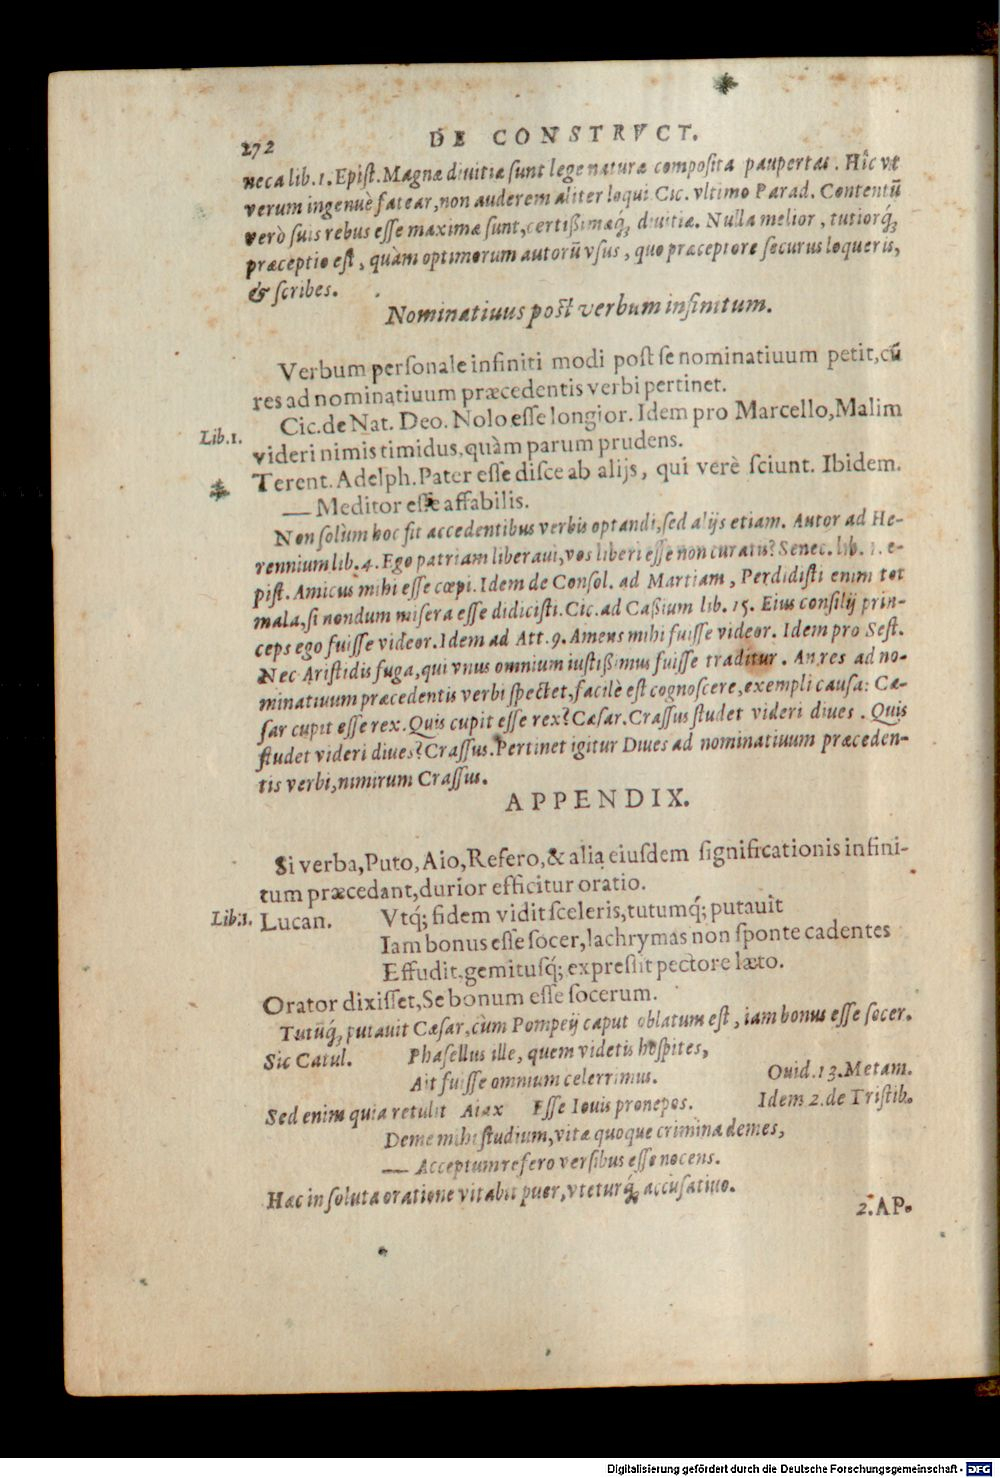 272 DE CONSTRVCT.
neca lib. 1. Epiſt. Magnæ diuitiæ ſunt lege naturæ compoſita paupertas. Hîc vt
verum ingenuè fatear, non auderem aliter loqui. Cic. vltimo Parad. Contentũ
verò ſuis rebus eſſe maximæ ſunt, certißimæq́; diuitiæ. Nulla melior, tutiorq́;
præceptio eſt, quàm optimorum autorũ vſus, quo præceptore ſecurus loqueris,
& ſcribes.
Nominatiuus poſt verbum infinitum.
Verbum perſonale infiniti modi poſt ſe nominatiuum petit, cũ
res ad nominatiuum præcedentis verbi pertinet.
Cic. de Nat. Deo. Nolo eſſe longior. Idem pro Marcello, Malim
Lib. 1.
videri nimis timidus, quàm parum prudens.
Terent. Adelph. Pater eſſe diſce ab alijs, qui verè ſciunt. Ibidem.
— Meditor eſſe affabilis.
Non ſolùm hoc fit accedentibus verbis optandi, ſed alijs etiam. Autor ad He-
rennium lib. 4. Ego patriam liberaui, vos liberi eſſe non curatis? Senec. lib. 1. e-
piſt. Amicus mihi eſſe cœpi. Idem de Conſol. ad Martiam, Perdidiſti enim tot
mala, ſi nondum miſera eſſe didiciſti. Cic. ad Caßium lib. 15. Eius conſilij prin-
ceps ego fuiſſe videor. Idem ad Att. 9. Amens mihi fuiſſe videor. Idem pro Seſt.
Nec Ariſtidis fuga, qui vnus omnium iuſtißimus fuiſſe traditur. An res ad no-
minatiuum præcedentis verbi ſpectet, facilè eſt cognoſcere, exempli cauſa: Cæ-
ſar cupit eſſe rex. Quis cupit eſſe rex? Cæſar. Craſſus ſtudet videri diues. Quis
ſtudet videri diues? Craſſus. Pertinet igitur Diues ad nominatiuum præceden-
tis verbi, nimirum Craſſus.
APPENDIX.
Si verba, Puto, Aio, Refero, & alia eiuſdem ſignificationis infini-
tum præcedant, durior efficitur oratio.
Lib. 1. Lucan. Vtq́; fidem vidit ſceleris, tutumq́; putauit
Iam bonus eſſe ſocer, lachrymas non ſponte cadentes
Effudit, gemituſq́; expreſſit pectore læto.
Orator dixiſſet, Se bonum eſſe ſocerum.
Tutũq́; putauit Cæſar, cùm Pompeij caput oblatum eſt, iam bonus eſſe ſocer.
Sic Catul. Phaſellus ille, quem videtis hoſpites,
Ait fuiſſe omnium celerrimus. Ouid. 13. Metam.
Sed enim quia retulit Aiax Eſſe Iouis pronepos. Idem 2. de Triſtib.
Deme mihi ſtudium, vitæ quoque crimina demes,
— Acceptum refero verſibus eſſe nocens.
Hæc in ſoluta oratione vitabit puer, vteturq́; accuſatiuo.
2. AP-
Digitalisierung gefördert durch die Deutsche Forschungsgemeinschaft - DFG